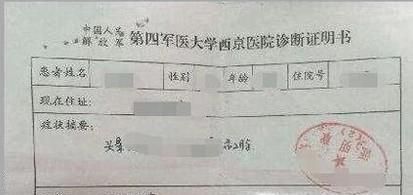 中国人民
解放军 第四军医大学西京医院诊断证明书
患者姓名 性别 年龄 住院号
现在住址:
症状摘要: